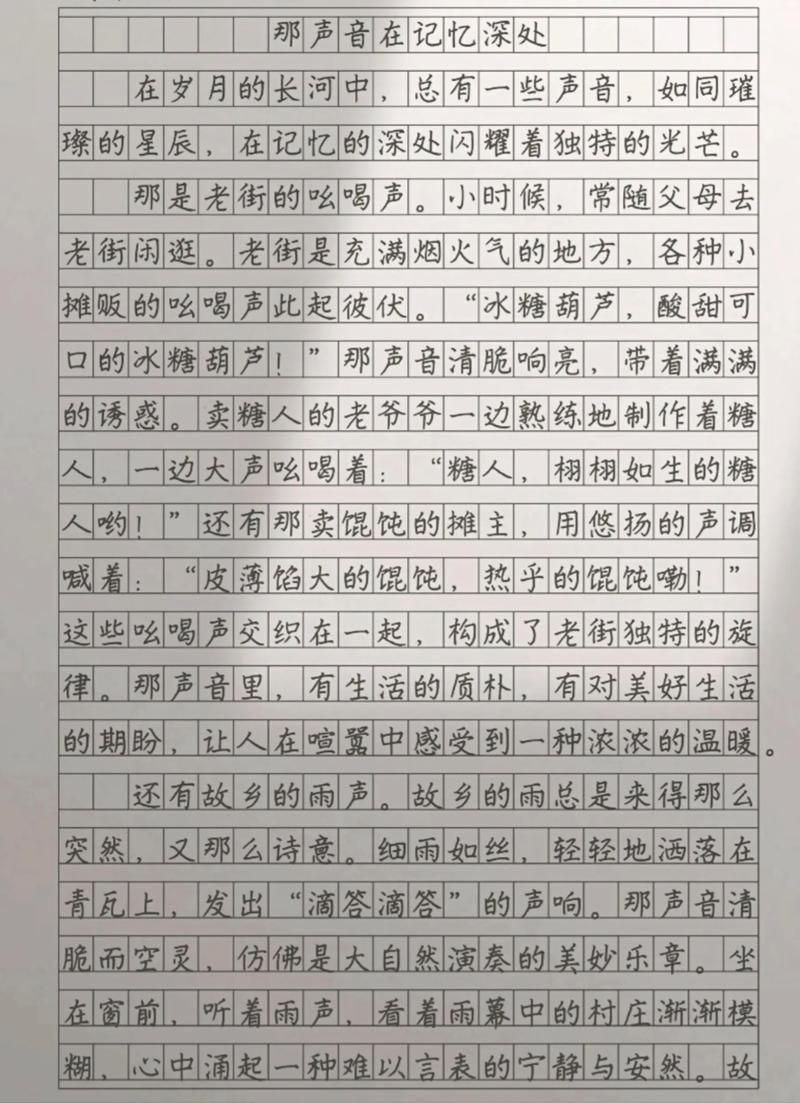 那声音在记忆深处
在岁月的长河中，总有一些声音，如同璀
璨的星辰，在记忆的深处闪耀着独特的光芒。
那是老街的吆喝声。小时候，常随父母去
老街闲逛。老街是充满烟火气的地方，各种小
摊贩的吆喝声此起彼伏。“冰糖葫芦，酸甜可
口的冰糖葫芦！”那声音清脆响亮，带着满满
的诱惑。卖糖人的老爷爷一边熟练地制作着糖
人，一边大声吆喝着：“糖人，栩栩如生的糖
人哟！”还有那卖馄饨的摊主，用悠扬的声调
喊着：“皮薄馅大的馄饨，热乎的馄饨嘞！”
这些吆喝声交织在一起，构成了老街独特的旋
律。那声音里，有生活的质朴，有对美好生活
的期盼，让人在喧嚣中感受到一种浓浓的温暖。
还有故乡的雨声。故乡的雨总是来得那么
突然，又那么诗意。细雨如丝，轻轻地洒落在
青瓦上，发出“滴答滴答”的声响。那声音清
脆而空灵，仿佛是大自然演奏的美妙乐章。坐
在窗前，听着雨声，看着雨幕中的村庄渐渐模
糊，心中涌起一种难以言表的宁静与安然。故